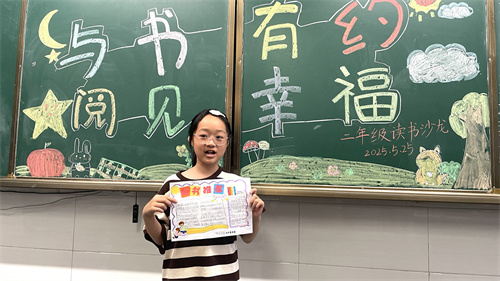 与书有约
阅见幸福
二年级读书沙龙
2025.5.25